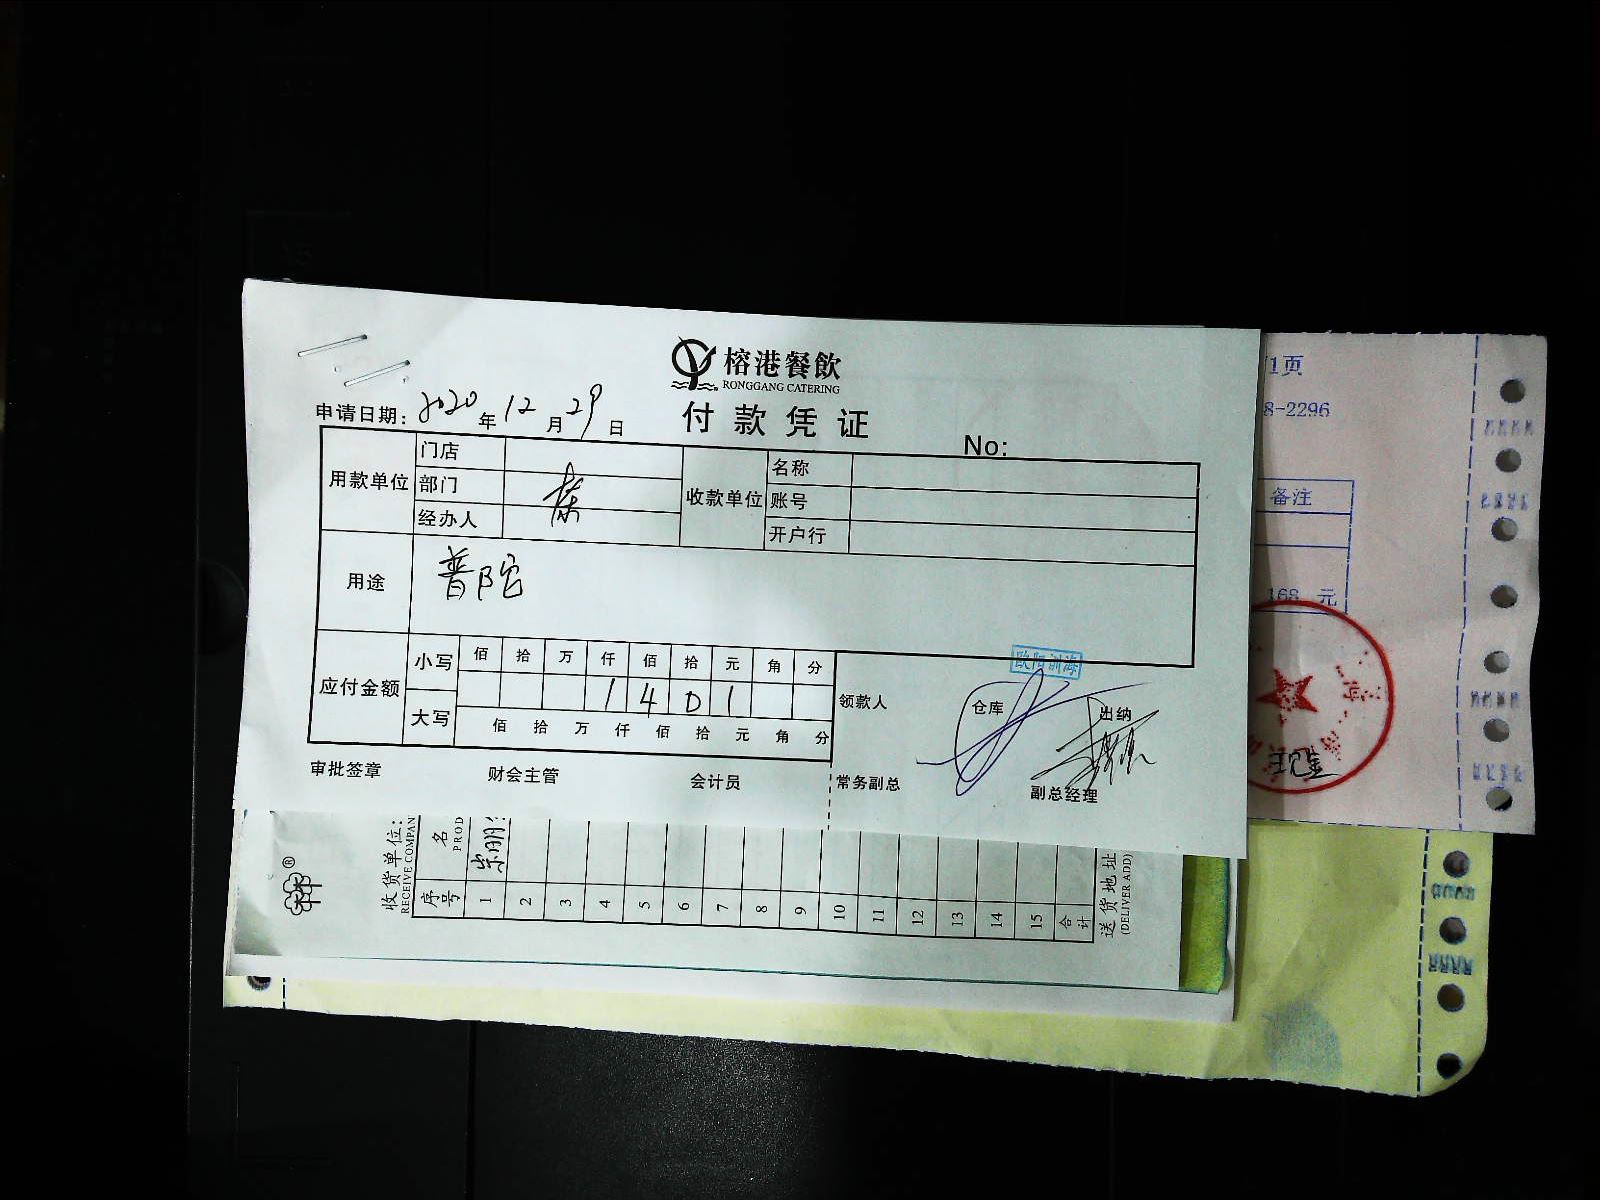 榕港餐飲
RONGGANG CATERING
付款凭证
申请日期: 2020 年 12 月 29 日
No:
用款单位
门店
部门
经办人
收款单位
名称
账号
开户行
用途
普陀
应付金额
小写
佰 拾 万 仟 佰 拾 元 角 分
1 4 0 1
大写
佰 拾 万 仟 佰 拾 元 角 分
领款人
仓库
出纳
审批签章
财会主管
会计员
常务副总
副总经理
1页
8-2296
备注
168 元
®
收货单位:
RECEIVE COMPAN
序号
名
PROD
崇明
1
2
3
4
5
6
7
8
9
10
11
12
13
14
15
合计
送货地址
(DELIVER ADD)